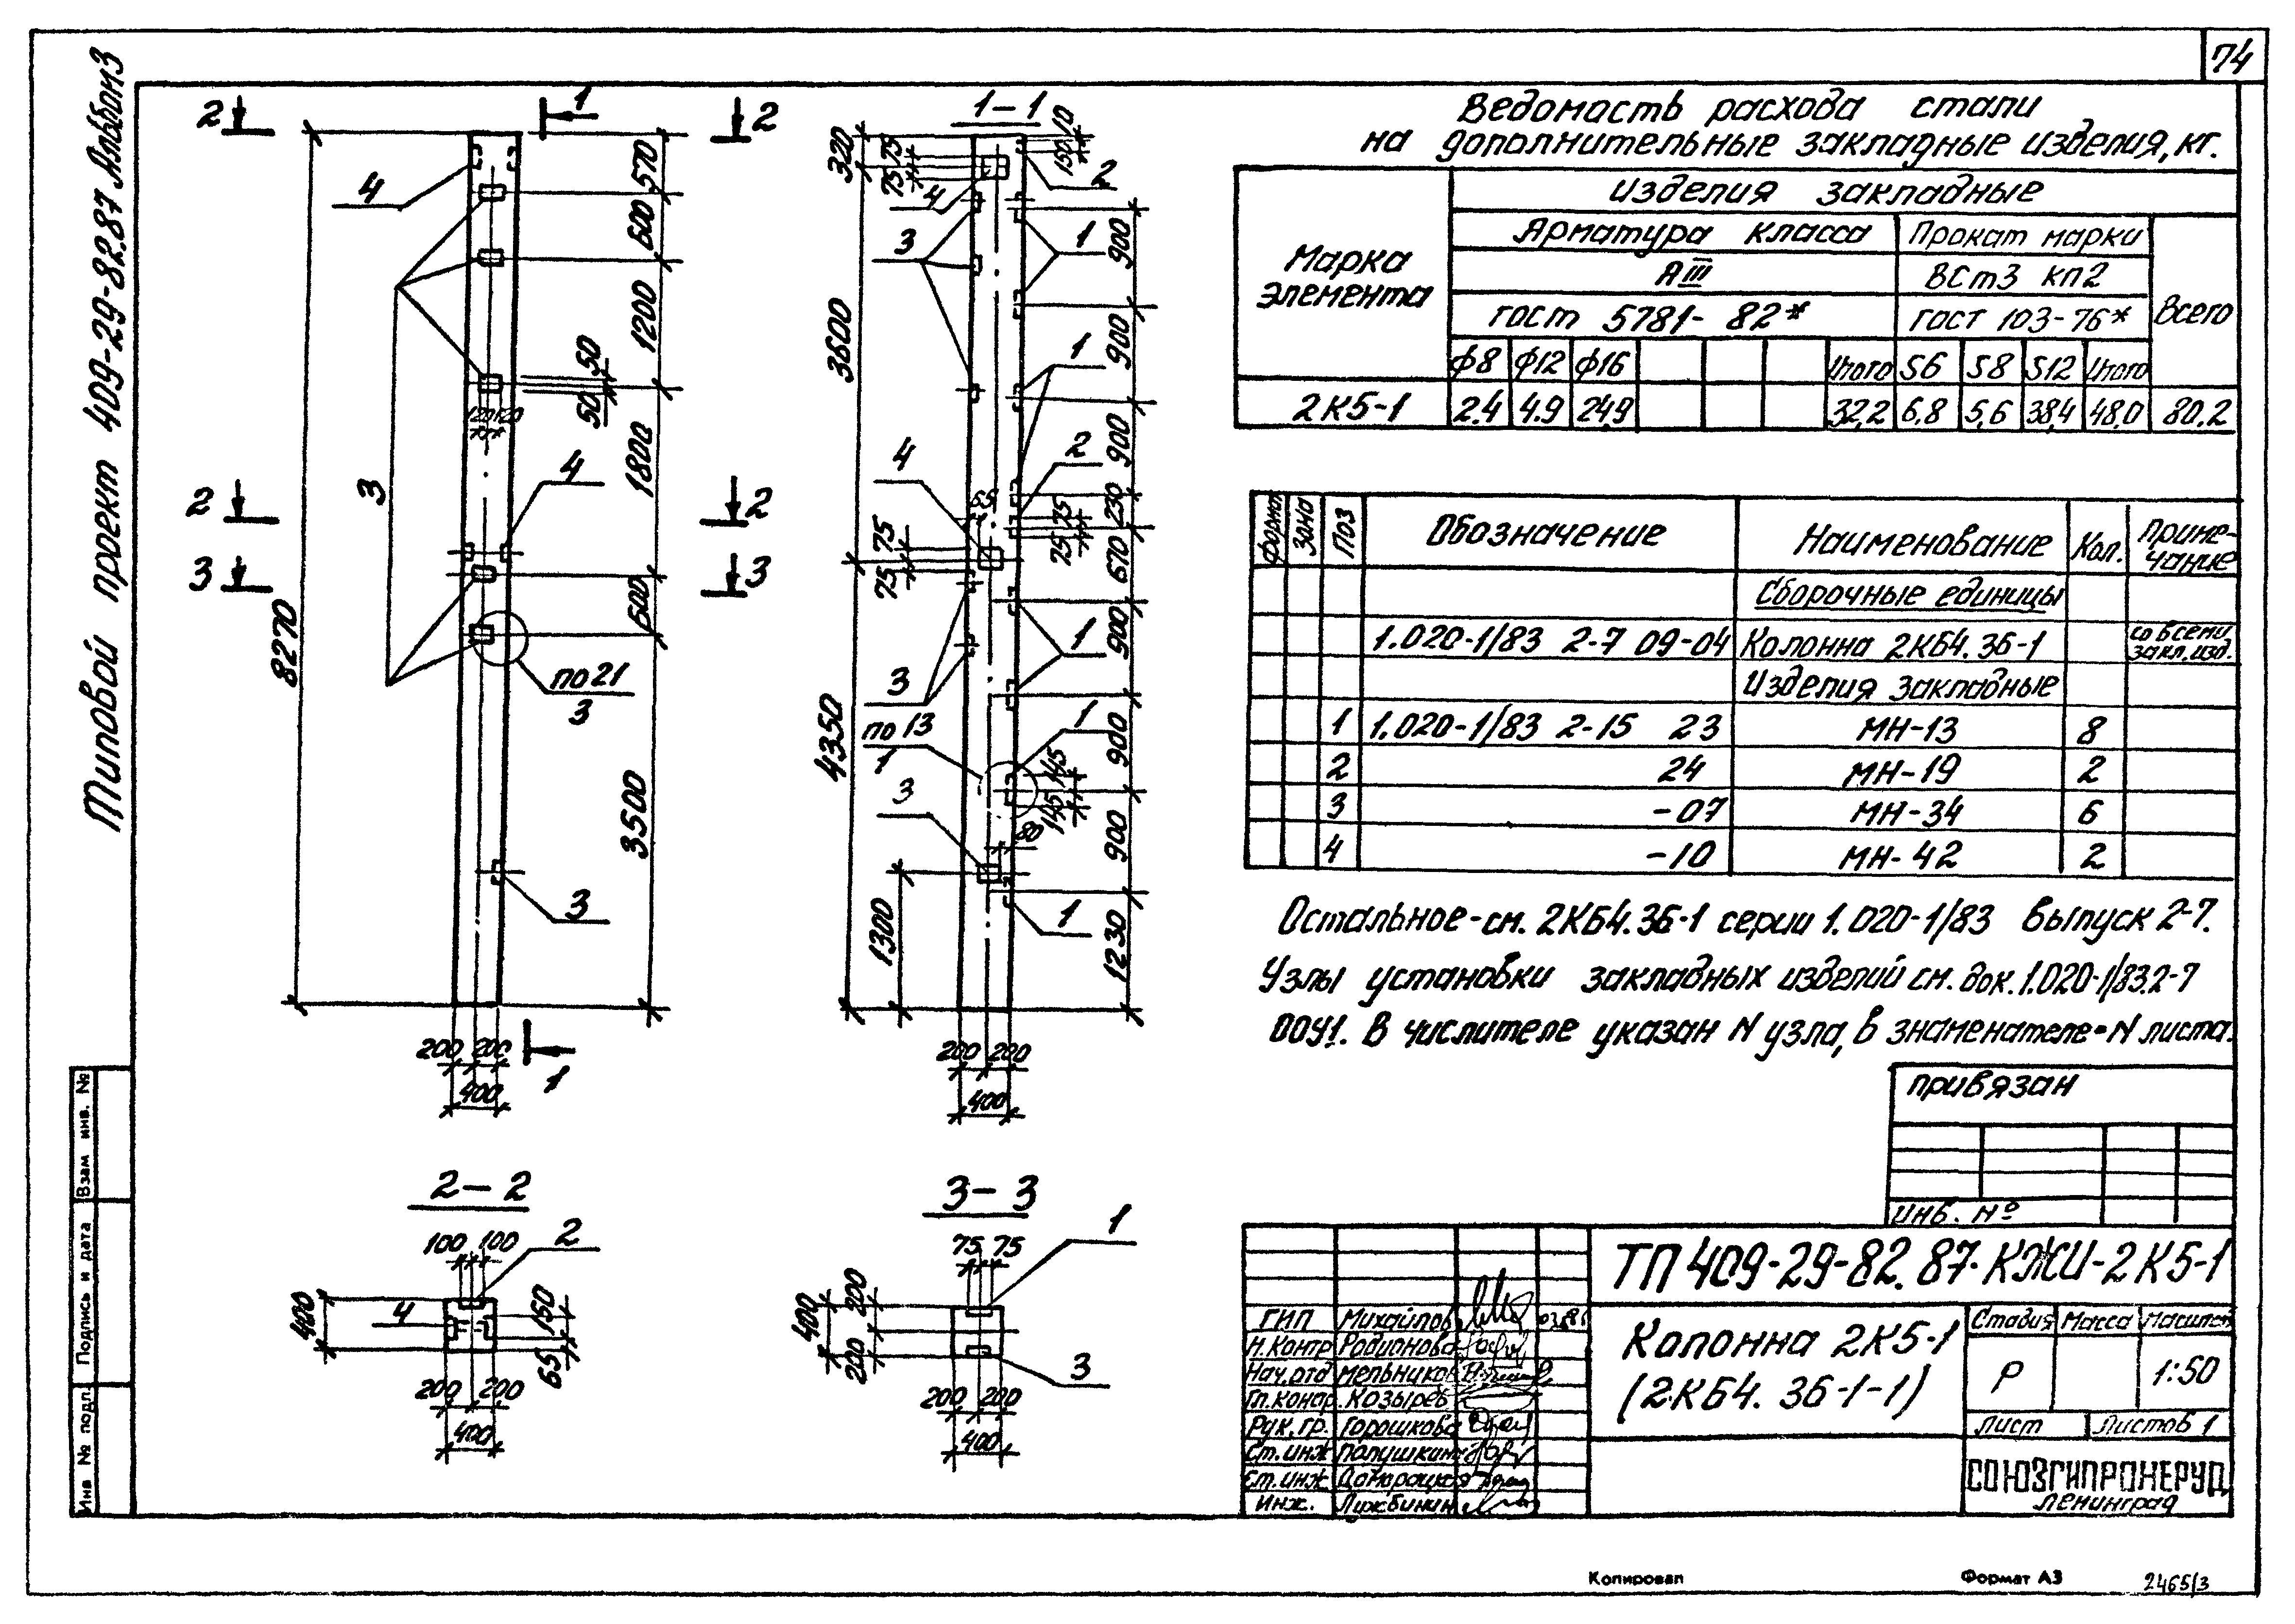 74
Типовой проект 409-29-82.87 Альбом 3
2 2
1
570
600
1200
50
50
120 120
1800
600
3500
8270
4
3
4
2 2
3 3
по 21
3
3
200 200
400
1
1-1
320
75
75
4
3
3600
4
65
75
75
3
4350
по 13
1
3
1300
10
150
2
1
900
900
1
900
2
230
75
75
670
1
900
900
1
145
145
80
900
1
1230
200 200
400
2-2
100 100
2
400
4
150
65
200 200
400
3-3
75 75
1
400
200
200
3
200 200
400
Ведомость расхода стали
на дополнительные закладные изделия, кг.
Марка элемента
Изделия закладные
Арматура класса Прокат марки
АIII ВСт3 кп2
Всего
ГОСТ 5781-82* ГОСТ 103-76*
ф8 ф12 ф16 Итого S6 S8 S12 Итого
2К5-1 2.4 4.9 24,9 32,2 6,8 5,6 38,4 48,0 80.2
Формат Зона Поз Обозначение Наименование Кол. Приме-чание
Сборочные единицы
1.020-1/83 2-7 09-04 Колонна 2КБ4.36-1 со всеми закл. изд.
Изделия закладные
1 1.020-1/83 2-15 23 МН-13 8
2 24 МН-19 2
3 -07 МН-34 6
4 -10 МН-42 2
Остальное-см. 2КБ4.36-1 серии 1.020-1/83 Выпуск 2-7.
Узлы установки закладных изделий см. док. 1.020-1/83.2-7
00Ч1. В числителе указан N узла, в знаменателе-N листа.
привязан
инв. №
ТП 409-29-82.87-КЖИ-2К5-1
ГИП Михайлов
Н.контр Родионова
Нач.отд Мельников
Гл.конс. Козырев
Рук.гр. Горошкова
Ст.инж
Ст.инж
Инж.
Колонна 2К5-1
(2КБ4.36-1-1)
Стадия Масса Масштаб
Р 1:50
Лист Листов 1
СОЮЗГИПРОНЕРУД
Ленинград
Взам инв. №
Подпись и дата
Инв № подл.
Копировал
Формат А3
2465/3